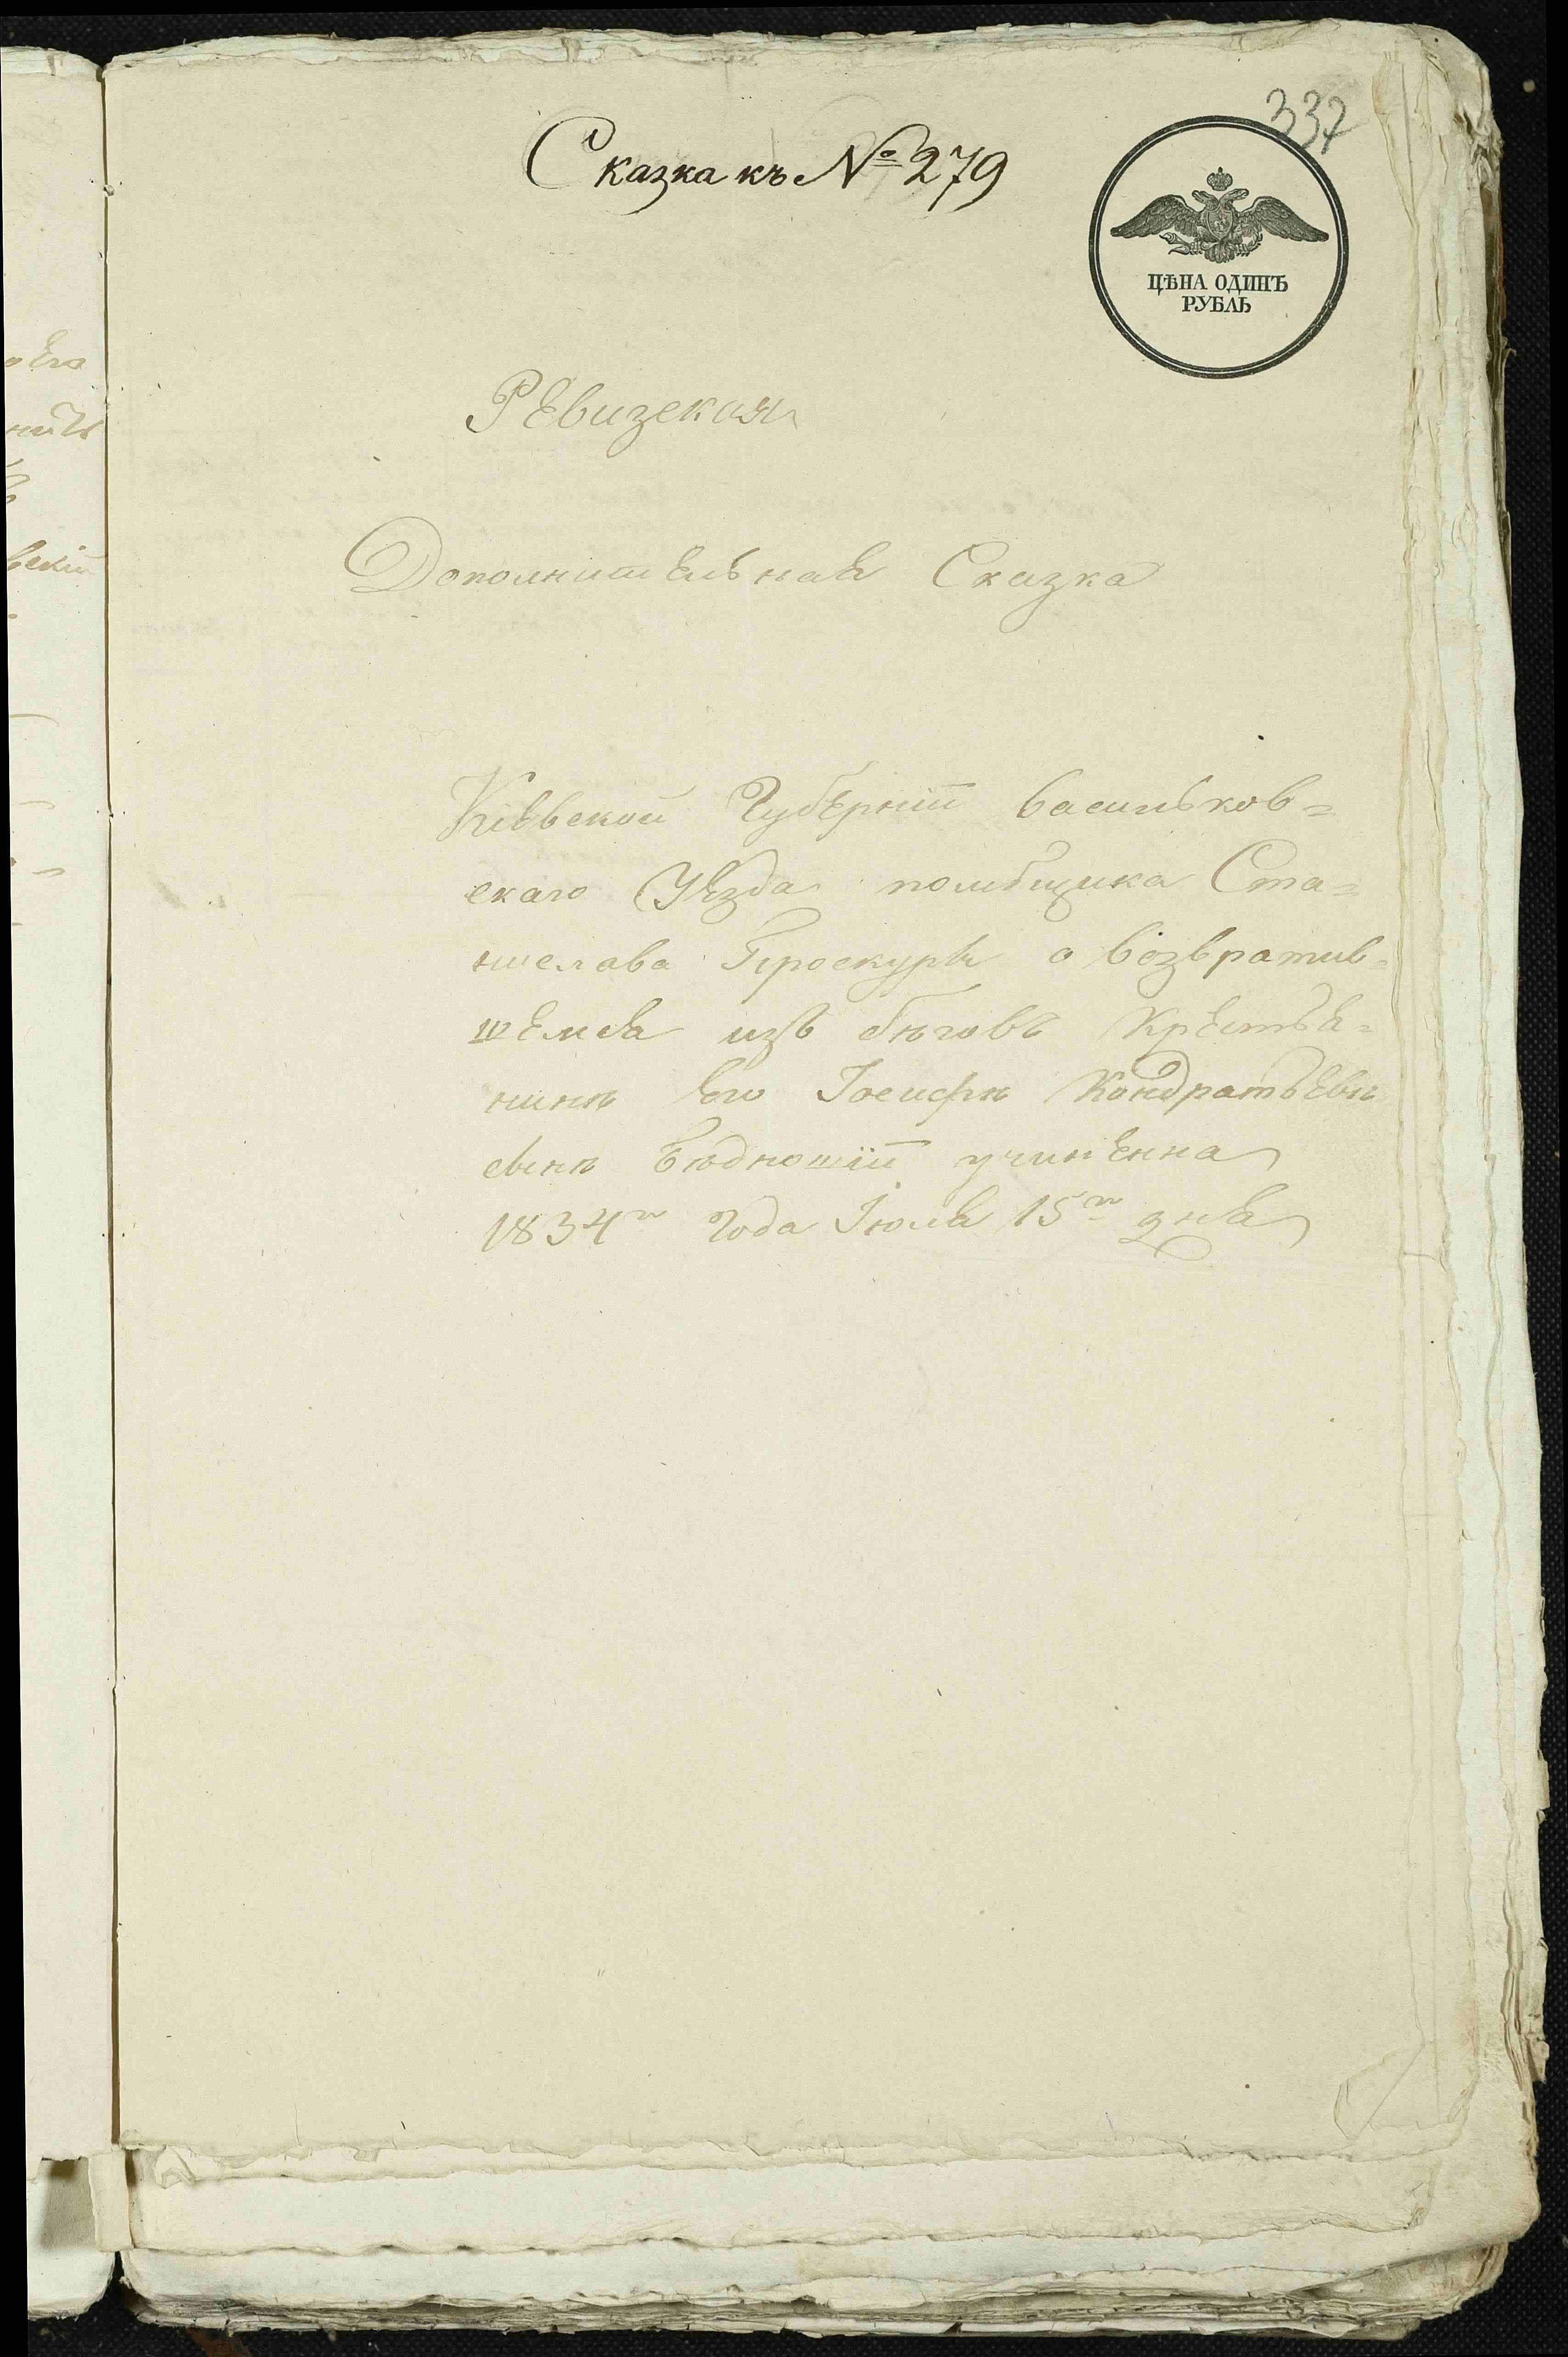 337
Сказка къ № 279
ЦѢНА ОДИНЪ
РУБЛЬ
Ревизская
Дополнительная Сказка
Кіевской Губерніи Васильков=
скаго Уѣзда помѣщика Ста=
нислава Проскуры о возвратив=
шемся изъ бѣговъ Крестья=
нинѣ Его Іосифѣ Кондратьевѣ
сынѣ учиненна
1834го Года Іюля 15го дня